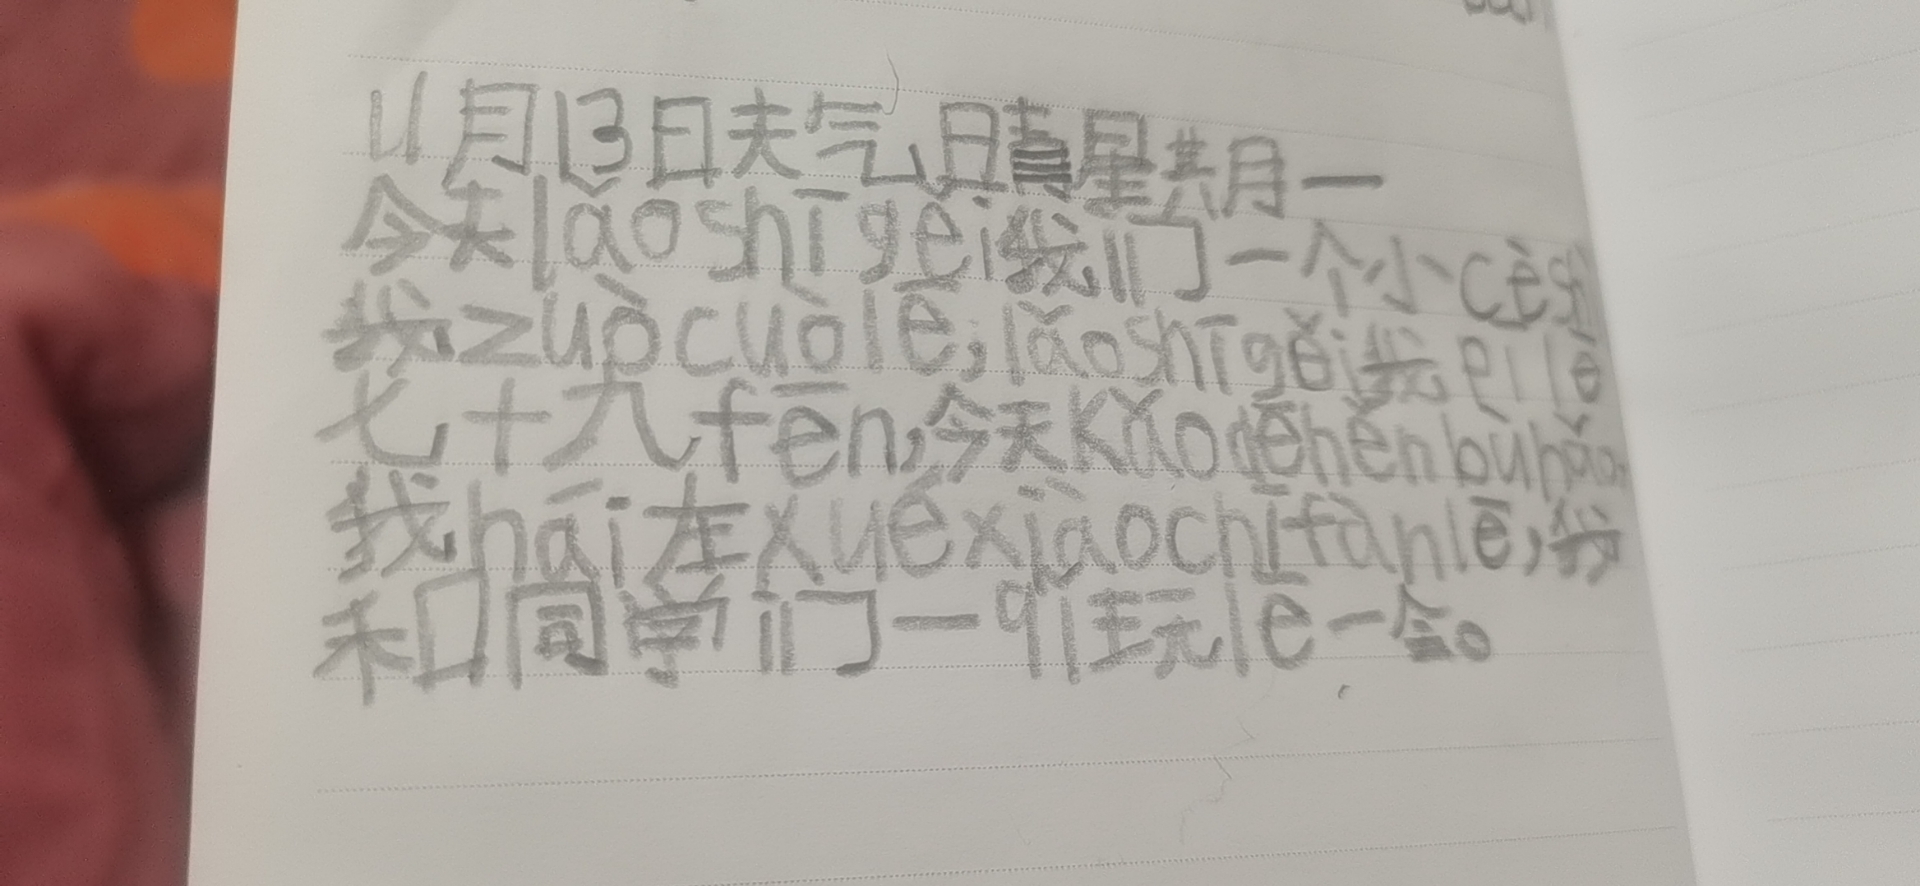 11月13日天气晴星期一
今天lǎoshīgěi我们一个小cèshì
我zuòcuòlē,lǎoshīgěi我pīlē
七十九fēn,今天kǎodēhěnbùhǎo,
我hái在xuéxiàochīfànlē,我
和同学们一qǐ玩lē一会。